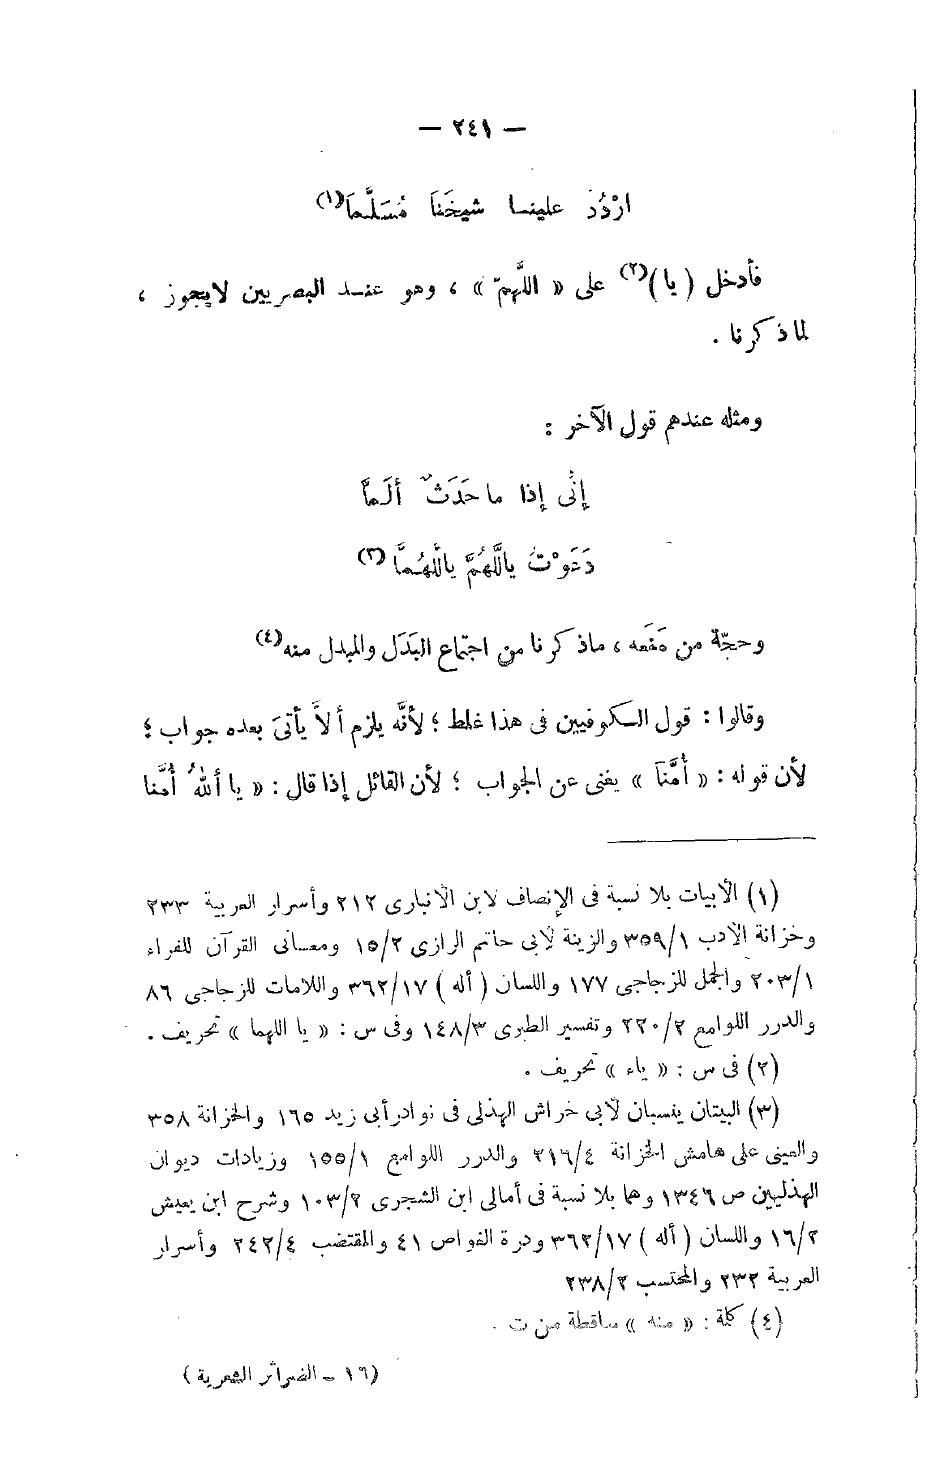 — ٢٤١ —
ارْدُدْ علينـا شيخَنَا مُسَلَّمَا(١)
فأدخل (يا)(٢) على « اللَّهمّ » ، وهو عنـد البصريين لايجوز ،
لما ذكرنا .
ومثله عندهم قول الآخر :
إنِّى إذا ما حَدَثٌ ألَمَّا
دَعَوْتُ ياللَّهُمَّ ياللَّهُمَّا (٣)
وحجّة من مَنَعه ، ماذكرنا من اجتماع البَدَل والمبدل منه(٤)
وقالوا : قول الـكوفيين فى هذا غلط ؛ لأنَّه يلزم ألاَّ يأتىَ بعده جواب ؛
لأن قوله : « أُمَّنَا » يغنى عن الجواب ؛ لأن القائل إذا قال : « يا أللهُ أُمَّنا
(١) الأبيات بلا نسبة فى الإنصاف لابن الأنبارى ٢١٢ وأسرار العربية ٢٣٣
وخزانة الأدب ٣٥٩/١ والزينة لأبى حاتم الرازى ١٥/٢ ومعـانى القرآن للفراء
٢٠٣/١ والجمل للزجاجى ١٧٧ واللسان ( أله ) ٣٦٢/١٧ واللامات للزجاجى ٨٦
والدرر اللوامع ٢٢٠/٢ وتفسير الطبرى ١٤٨/٣ وفى س : « يا اللهما » تحريف .
(٢) فى س : « ياء » تحريف .
(٣) البيتان ينسبان لأبى خراش الهذلى فى نوادر أبى زيد ١٦٥ والخزانة ٣٥٨
والعينى على هامش الخزانة ٢١٦/٤ والدرر اللوامع ١٥٥/١ وزيادات ديوان
الهذليين ص ١٣٤٦ وهما بلا نسبة فى أمالى ابن الشجرى ١٠٣/٢ وشرح ابن يعيش
١٦/٢ واللسان ( أله ) ٣٦٢/١٧ ودرة الغواص ٤١ والمقتضب ٢٤٢/٤ وأسرار
العربية ٢٣٢ والمحتسب ٢٣٨/٢
(٤) كلمة : « منه » ساقطة من ت .
(١٦ - الضرائر الشعرية )